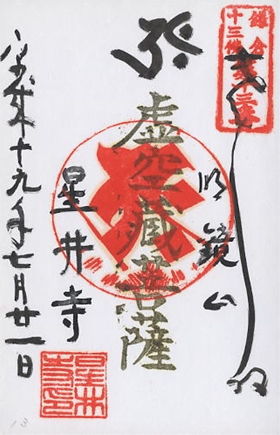 鎌倉
十三佛第十三番
奉拝
明鏡山
虚空藏菩薩
星井寺
平成十九年七月廿一日
星井
寺印
13